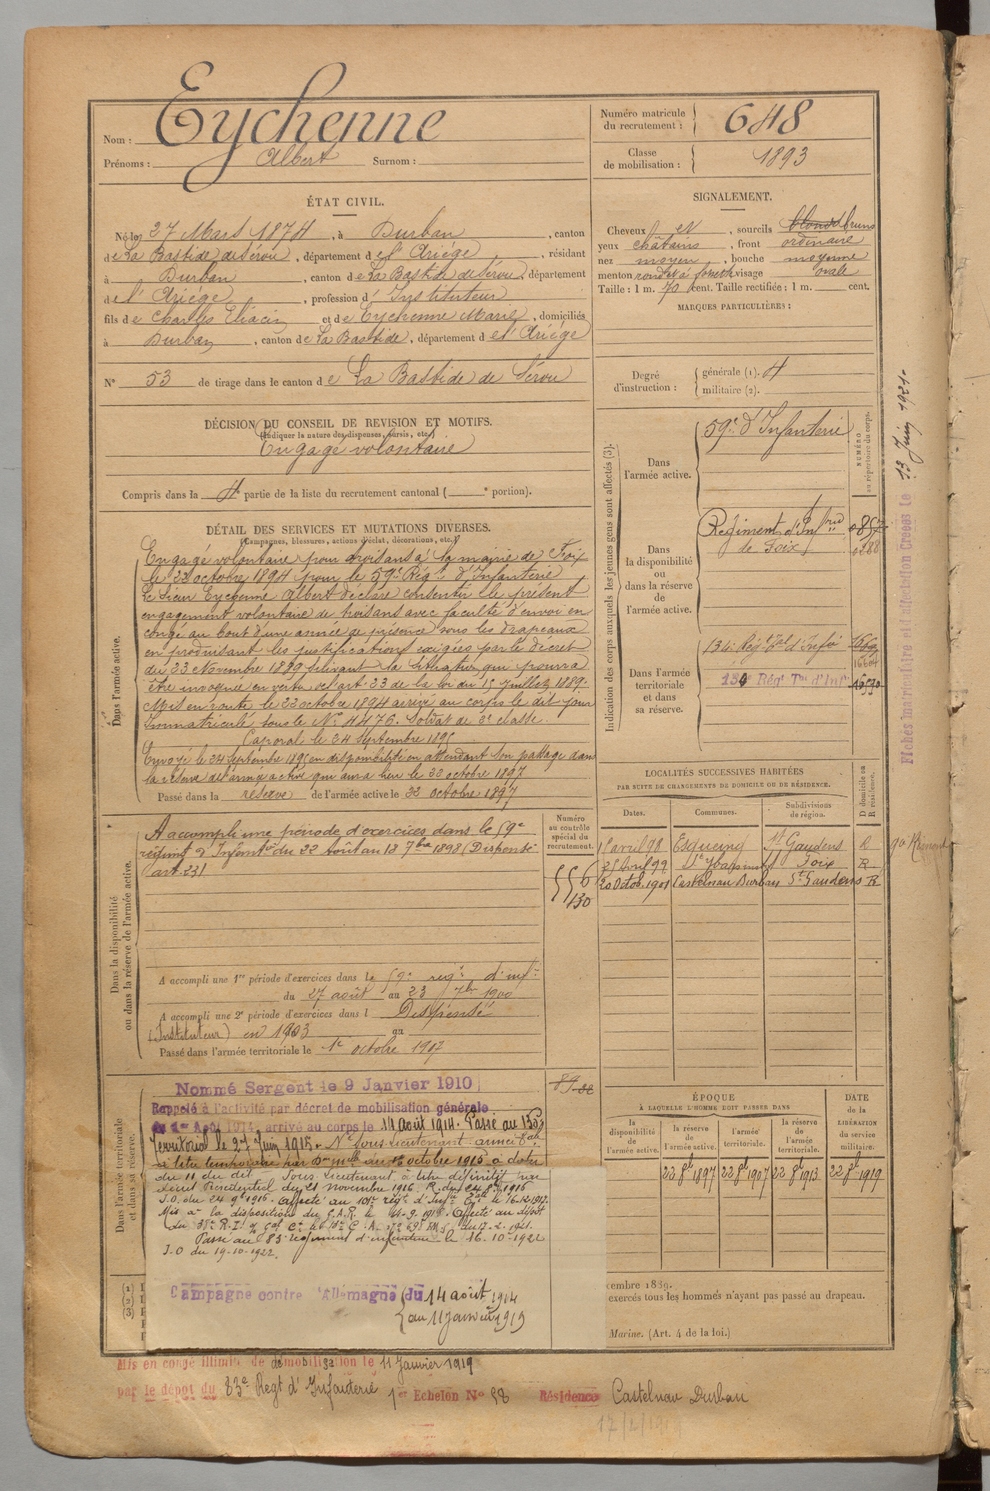 Nom : Eychenne
Prénoms : Albert Surnom :
Numéro matricule du recrutement : 648
Classe de mobilisation : 1893
ÉTAT CIVIL.
Né le 27 Mars 1874, à Durban, canton
de La Bastide de Sérou, département de l'Ariège, résidant
à Durban, canton de La Bastide de Sérou, département
de l'Ariège, profession d'Instituteur
fils de Charles Eliacin et de Eychenne Marie, domiciliés
à Durban, canton de La Bastide, département de l'Ariège
N° 53 de tirage dans le canton de La Bastide de Sérou
SIGNALEMENT.
Cheveux et, sourcils blonds bruns
yeux châtains, front ordinaire
nez moyen, bouche moyenne
menton rond à fossette visage ovale
Taille : 1 m. 70 cent. Taille rectifiée : 1 m. cent.
MARQUES PARTICULIÈRES :
Degré d'instruction : générale (1). 4
militaire (2).
DÉCISION DU CONSEIL DE REVISION ET MOTIFS.
(Indiquer la nature des dispenses, sursis, etc.)
Engagé volontaire
Compris dans la 4e partie de la liste du recrutement cantonal ( e portion).
DÉTAIL DES SERVICES ET MUTATIONS DIVERSES.
(Campagnes, blessures, actions d'éclat, décorations, etc.)
Dans l'armée active.
Engagé volontaire pour trois ans à la mairie de Foix
le 22 octobre 1894 pour le 59e Régt d'Infanterie
Le sieur Eychenne Albert déclare consentir le présent
engagement volontaire de trois ans avec faculté d'envoi en
congé au bout d'une année de présence sous les drapeaux
en produisant les justifications exigées par le décret
du 23 Novembre 1889 suivant la situation qui pourra
être invoquée en vertu de l'art. 23 de la loi du 15 Juillet 1889.
Mis en route le 22 octobre 1894 arrivé au corps le dit jour
Immatriculé sous le N° 4476. Soldat de 2e classe.
Caporal le 24 Septembre 1895
Envoyé le 24 Septembre 1895 en disponibilité en attendant son passage dans
la réserve de l'armée active qui aura lieu le 22 octobre 1897
Passé dans la réserve de l'armée active le 22 octobre 1897
Indication des corps auxquels les jeunes gens sont affectés (3).
NUMÉRO au répertoire du corps.
Dans l'armée active.
59e d'Infanterie
Dans la disponibilité ou dans la réserve de l'armée active.
Régiment d'Infrie de Foix
Dans l'armée territoriale et dans sa réserve.
134e Régt Tal d'Infie
Régt Tal d'Inf
Fiches matriculaire et d'affectation Créées le 13 Juin 1924
LOCALITÉS SUCCESSIVES HABITÉES
PAR SUITE DE CHANGEMENTS DE DOMICILE OU DE RÉSIDENCE.
Dates. Communes. Subdivisions de région. D domicile ou R résidence.
1 avril 98 St Gaudens R
25 Avril 99 Foix R
20 Octob. 1901 Castelnau Durban St Gaudens R
Dans la disponibilité ou dans la réserve de l'armée active.
Numéro au contrôle spécial du recrutement.
556
130
A accompli une période d'exercices dans le 59e
régiment d'Infantie du 22 Août au 18 7bre 1898 (Dispensé
art. 23)
A accompli une 1re période d'exercices dans le 59e régt d'infie
du 27 août au 23 7bre 1900
A accompli une 2e période d'exercices dans l Dispensé
(Instituteur) en 1903 au
Passé dans l'armée territoriale le 1er octobre 1907
Dans l'armée territoriale et dans sa réserve.
Nommé Sergent le 9 Janvier 1910
Rappelé à l'activité par décret de mobilisation générale
du 1er Août 1914, arrivé au corps le 14 août 1914. Passé au 135e
Territorial le 27 Juin 1915. Né sous-Lieutenant
à titre temporaire par Don mlle du 16 octobre 1915 à dater
du 11 du dit Sous Lieutenant à titre définitif par
décret Présidentiel du 21 novembre 1916
J.O. du 24 9bre 1916. Affecté au
Mis à la disposition du G.A.R. le Affecté au dépôt
du 17-2-1921.
Passé au 83e régiment d'infanterie le 16-10-1922
J.O du 19-10-1922.
Campagne contre l'Allemagne du 14 août 1914
au 11 janvier 1919
ÉPOQUE
À LAQUELLE L'HOMME DOIT PASSER DANS
la disponibilité de l'armée active.
la réserve de l'armée active.
l'armée territoriale.
la réserve de l'armée territoriale.
DATE de la LIBÉRATION du service militaire.
22 8bre 1897 22 8bre 1907 22 8bre 1913 22 8bre 1919
cembre 1889.
exercés tous les hommes n'ayant pas passé au drapeau.
Marine. (Art. 4 de la loi.)
Mis en congé illimité de démobilisation le 11 Janvier 1919
par le dépôt du 83e Regt d'Infanterie 1er Echelon N° 98 Résidence Castelnau Durban